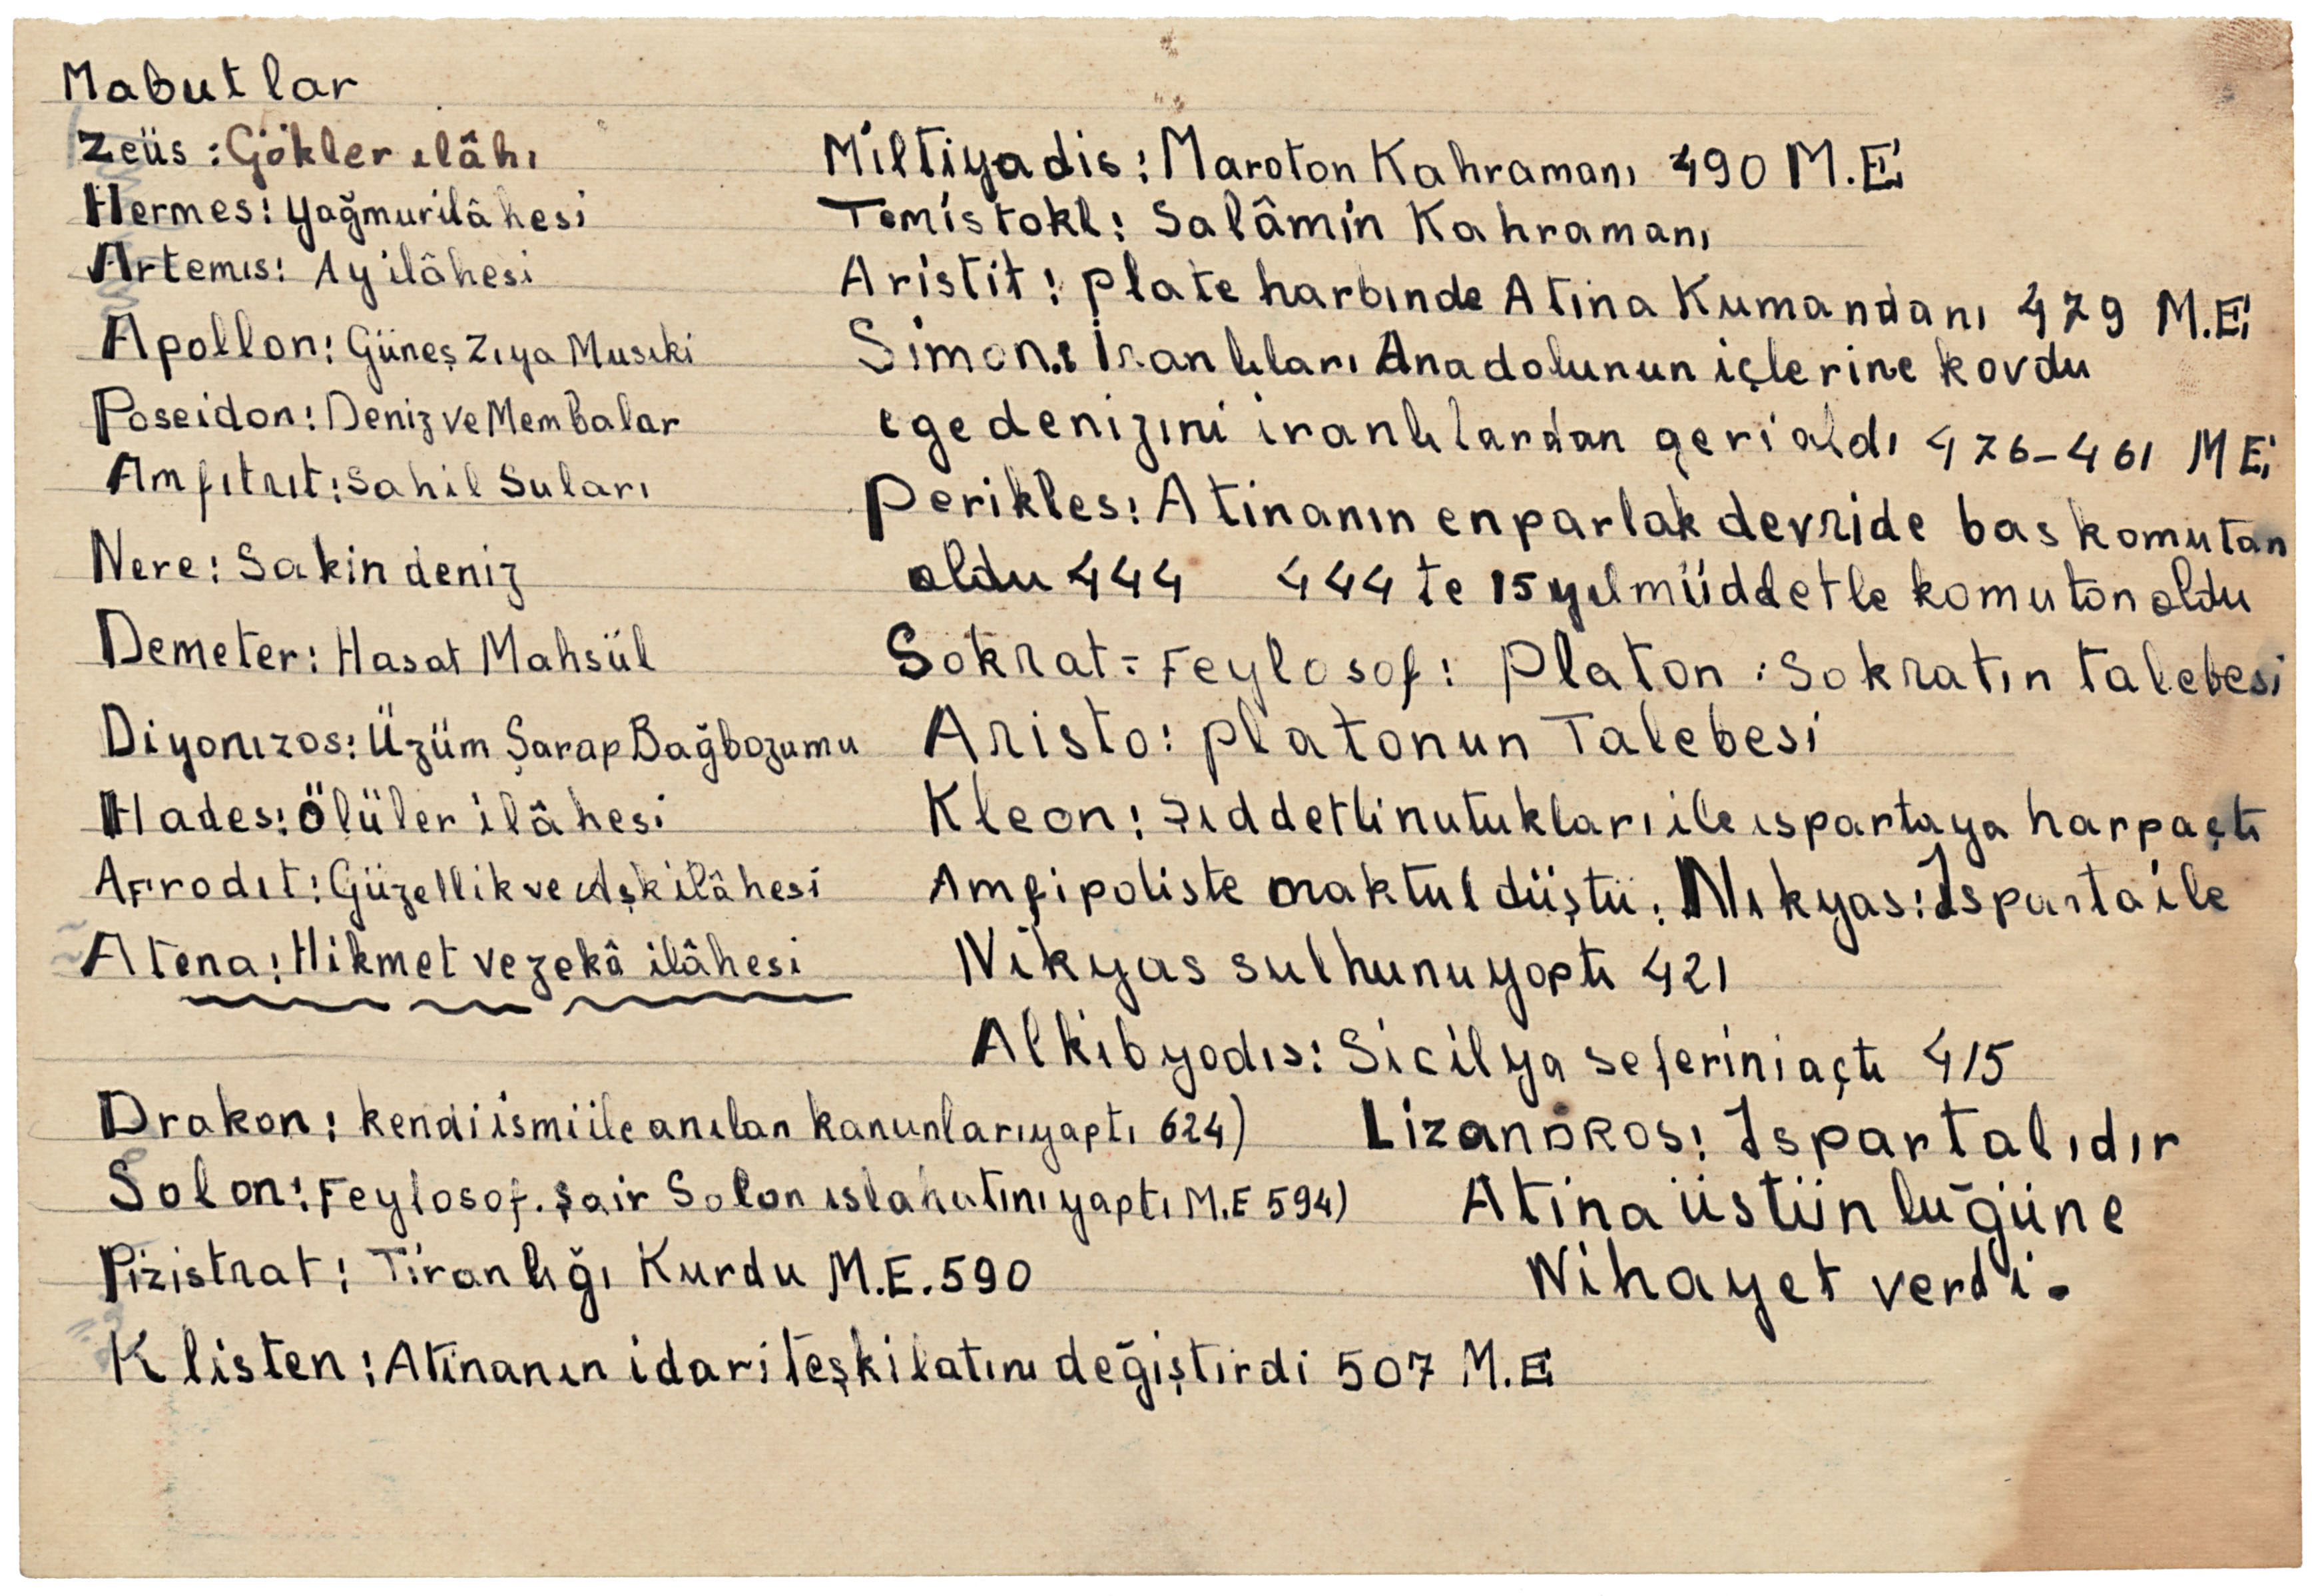 Mabutlar
Zeüs : Gökler ılâhı
Hermes: yağmur ilâhesi
Artemıs: Ay ilâhesi
Apollon: Güneş Zıya Musıki
Poseidon: Deniz ve Membalar
Amfıtrıt: Sahil Suları
Nere: Sakin deniz
Demeter: Hasat Mahsül
Diyonızos: Üzüm Şarap Bağbozumu
Hades: Ölüler ilâhesi
Afrodıt: Güzellik ve Aşk ilâhesi
Atena: Hikmet ve zekâ ilâhesi
Miltiyadis: Maroton Kahramanı 490 M.E
Temistokl: Salâmin Kahramanı
Aristit: plate harbınde Atına Kumandanı 479 M.E
Simon: İranlıları Anadolunun içlerine kovdu
ege denizıni iranlılardan geri aldı 476-461 M E
Perikles: Atinanın en parlak devride bas komutan
oldu 444 444 te 15 yıl müddetle komutan oldu
Sokrat = Feylosof: Platon : Sokratın talebesi
Aristo: platonun Talebesi
Kleon: Şıddetli nutukları ile ıspartaya harp açtı
Amfipoliste maktul düştü: Nıkyas: Isparta ile
Nikyas sulhunu yaptı 421
Alkıbyadıs: Sicilya seferini açtı 415
Drakon: kendi ismi ile anılan kanunları yaptı 624)
Solon: Feylosof. şair Solon ıslahatını yaptı M.E 594)
Pizistrat: Tiranlığı Kurdu M.E. 590
Klisten: Atinanın idari teşkilatını değiştirdi 507 M.E
Lizandros: Ispartalıdır
Atina üstünlüğüne
Nihayet verdi.